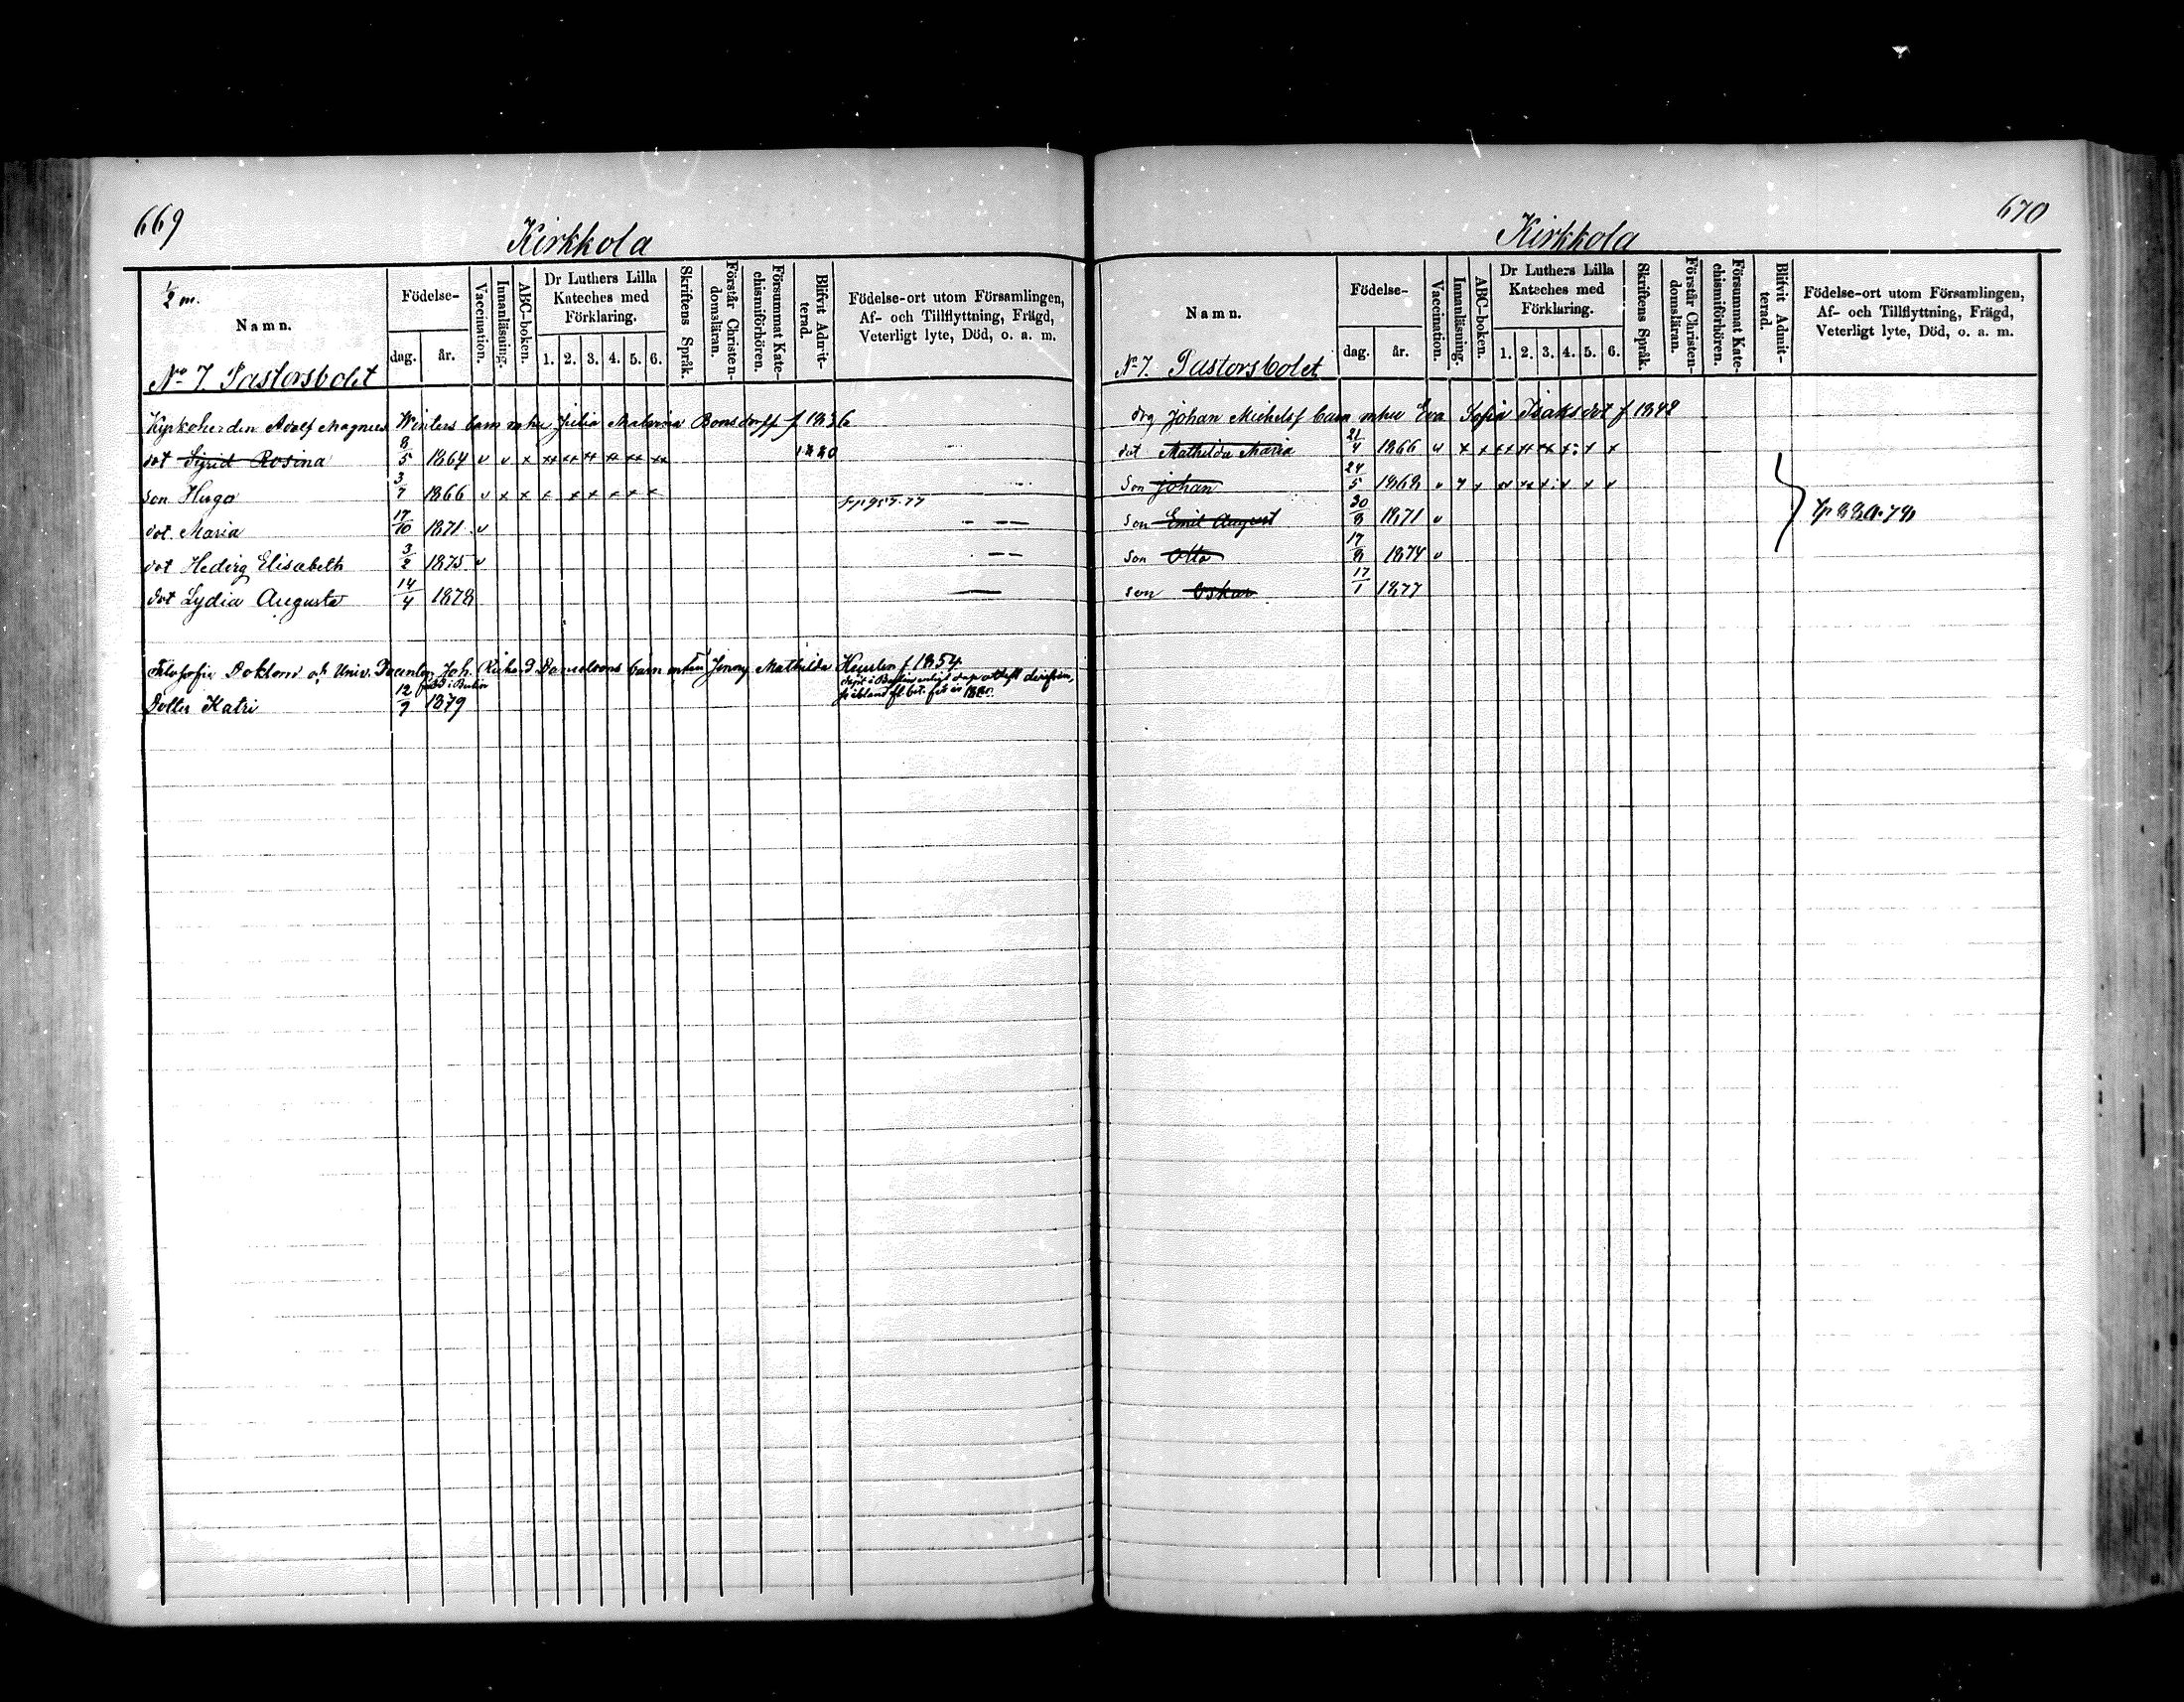 669
Kirkkola
1/2 m.
Namn.
Födelse-
dag.
år.
Vaccination.
Innanläsning.
ABC-boken.
Dr Luthers Lilla
Kateches med
Förklaring.
1. 2. 3. 4. 5. 6.
Skriftens Språk.
Förstår Christen-
domsläran.
Försummat Kate-
chismiförhören.
Blifvit Admit-
terad.
Födelse-ort utom Församlingen,
Af- och Tillflyttning, Frägd,
Veterligt lyte, Död, o. a. m.
No 7 Pastorsbolet
Kyrkoherden Adolf Magnus Winters barn mhu Julia Malvina Bonsdorff f 1836
dot Sigrid Rosina 8/5 1864 v v x xx xx xx xx xx xx 1880
son Hugo 3/7 1866 v x x x x x x x x
dot Maria 17/10 1871 v
dot Hedvig Elisabeth 3/2 1875 v
dot Lydia Augusta 14/4 1878
Filosofie Doktorn och Univ. Docenten Joh. Richard Danielsons barn m hu Jenny Mathilda f 1854
född i Berlin
Dotter Katri 12/7 1879
670
Kirkkola
Namn.
Födelse-
dag.
år.
Vaccination.
Innanläsning.
ABC-boken.
Dr Luthers Lilla
Kateches med
Förklaring.
1. 2. 3. 4. 5. 6.
Skriftens Språk.
Förstår Christen-
domsläran.
Försummat Kate-
chismiförhören.
Blifvit Admit-
terad.
Födelse-ort utom Församlingen,
Af- och Tillflyttning, Frägd,
Veterligt lyte, Död, o. a. m.
No 7. Pastorsbolet
drg Johan Michelsf barn mhu Eva Sofia Isaksdot f 1842
dot Mathilda Maria 21/4 1866 v x x x x x x x x
Son Johan 24/5 1868 v x x x x x x x x
Son Emil August 30/8 1871 v
Son Otto 17/8 1874 v
son Oskar 17/1 1877